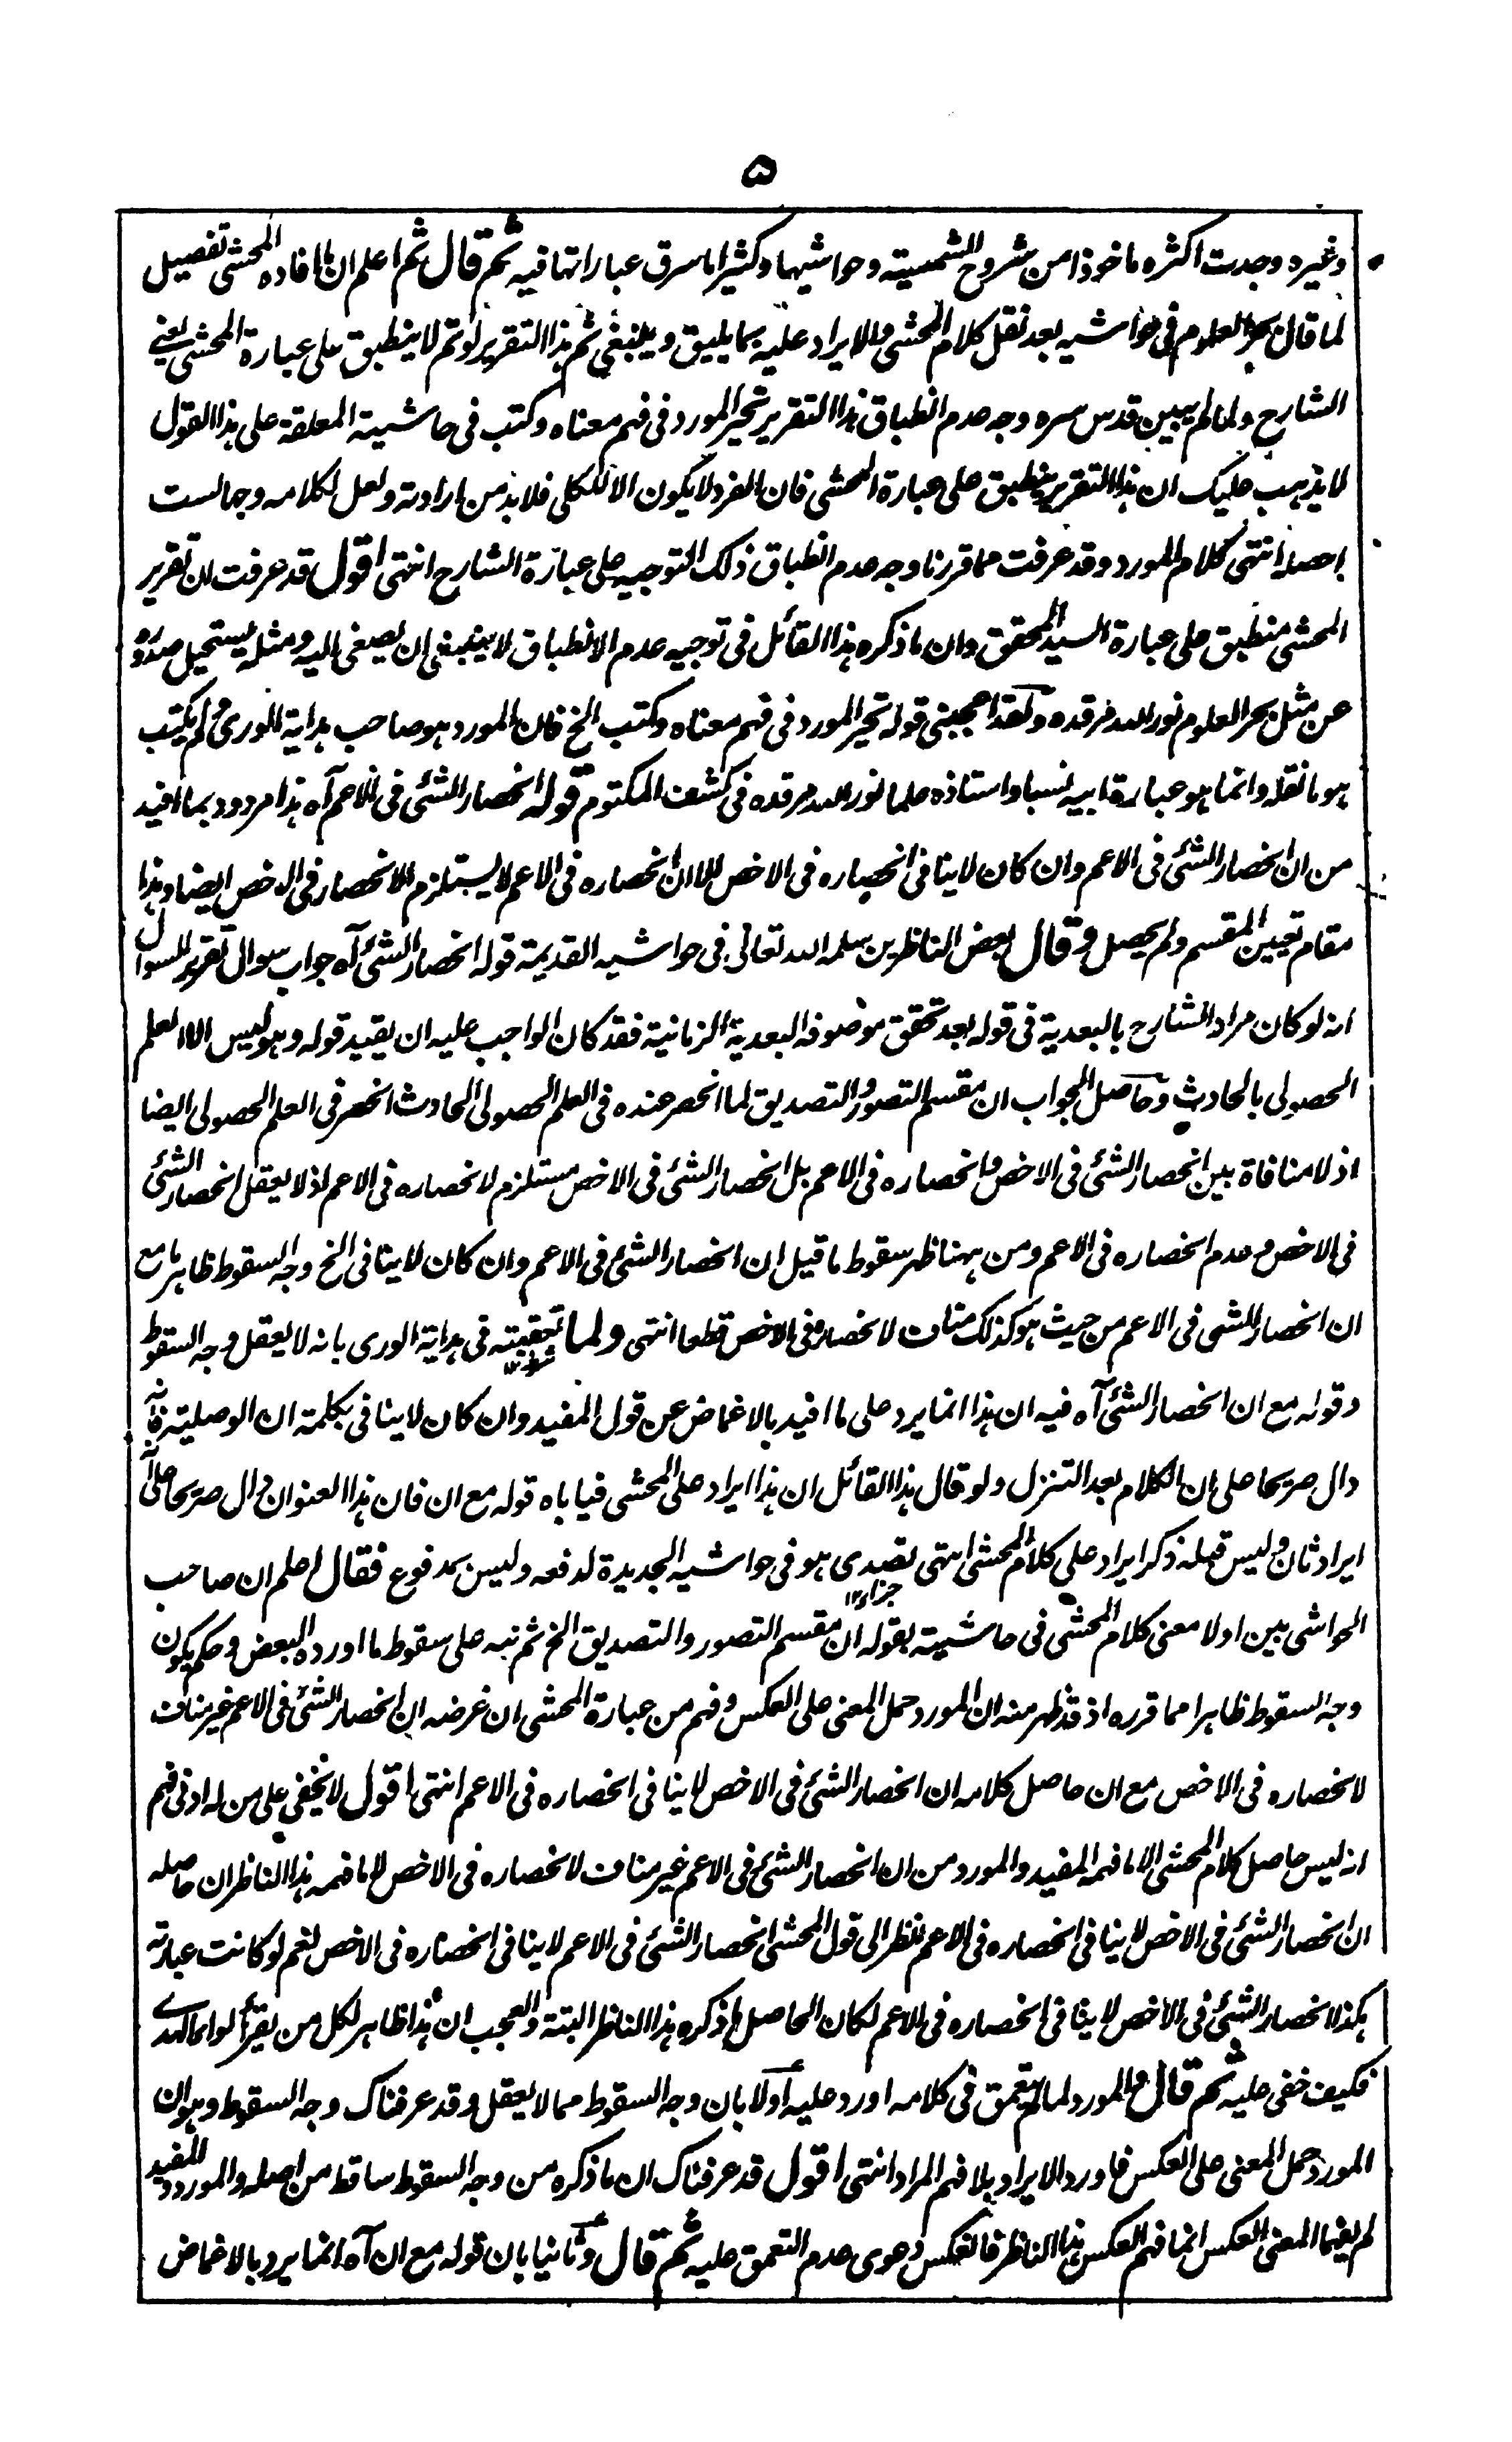 ۵
وغيره وجدت اكثره ماخوذا من شروح الشمسية وحواشيها وكثيرا ما سرق عباراتها فيه ثم قال ثم اعلم ان ما افاده المحشى تفصيل
لما قال بحر العلوم فى حواشيه بعد نقل كلام المحشى والايراد عليه بما يليق وينبغى ثم هذا التقرير لو تم لا ينطبق على عبارة المحشى يعنى
الشارح ولما لم يبين قدس سره وجه عدم انطباق هذا التقرير تحير المورد فى فهم معناه وكتب فى حاشية المعلقة على هذا القول
لا يذهب عليك ان هذا التقرير ينطبق على عبارة المحشى فان الفرد لا يكون الا للكلى فلا بد من ارادته ولعل لكلامه وجها لست
احصله انتهى كلام المورد وقد عرفت مما قررنا وجه عدم انطباق ذلك التوجيه على عبارة الشارح انتهى اقول قد عرفت ان تقرير
المحشى منطبق على عبارة السيد المحقق وان ما ذكره هذا القائل فى توجيه عدم الانطباق لا ينبغى ان يصغى اليه ومثله يستحيل صدوره
عن مثل بحر العلوم نور الله مرقده ولقد اعجبنى قوله تحير المورد فى فهم معناه وكتب الخ فان المورد هو صاحب هداية الورى ولم يكتب
هو ما نقله وانما هو عبارة ابيه نسبا واستاذه علما نور الله مرقده فى كشف المكتوم قوله انحصار الشئ فى الاعم آه هذا مردود بما افيد
من ان انحصار الشئ فى الاعم وان كان لا ينافى انحصاره فى الاخص الا ان انحصاره فى الاعم لا يستلزم الانحصار فى الاخص ايضا وهذا
مقام تعيين المقسم ولم يحصل وقال بعض الناظرين سلمه الله تعالى فى حواشيه القديمة قوله انحصار الشئ آه جواب سوال تقرير السوال
انه لو كان مراد الشارح بالبعدية فى قوله بعد تحقق موصوفه البعدية الزمانية فقد كان الواجب عليه ان يقيد قوله وهو ليس الا العلم
الحصولى بالحادث وحاصل الجواب ان مقسم التصور والتصديق لما انحصر عنده فى العلم الحصولى الحادث انحصر فى العلم الحصولى ايضا
اذ لا منافاة بين انحصار الشئ فى الاخص وانحصاره فى الاعم بل انحصار الشئ فى الاخص مستلزم لانحصاره فى الاعم اذ لا يعقل انحصار الشئ
فى الاخص وعدم انحصاره فى الاعم ومن ههنا ظهر سقوط ما قيل ان انحصار الشئ فى الاعم وان كان لا ينافى الخ وجه السقوط ظاهر مع
ان انحصار الشئ فى الاعم من حيث هو كذلك مناف لانحصاره فى الاخص قطعا انتهى ولما تعقبته فى هداية الورى بانه لا يعقل وجه السقوط
شرط ١٢
وقوله مع ان انحصار الشئ آه فيه ان هذا انما يرد على ما افيد بالاغماض عن قول المفيد وان كان لا ينافى بكلمة ان الوصلية فانه
دال صريحا على ان الكلام بعد التنزل ولو قال هذا القائل ان هذا ايراد على المحشى فياباه قوله مع ان فان هذا العنوان دال صريحا على انه
ايراد ثان وليس قبله ذكر ايراد على كلام المحشى انتهى تصدى هو فى حواشيه الجديدة لدفعه وليس بمدفوع فقال اعلم ان صاحب
جزاء ١٢
الحواشى بين اولا معنى كلام المحشى فى حاشيته بقوله ان مقسم التصور والتصديق الخ ثم نبه على سقوط ما اورده البعض وحكم بكون
وجه السقوط ظاهرا مما قرره اذ قد ظهر منه ان المورد حمل المعنى على العكس وفهم من عبارة المحشى ان غرضه ان انحصار الشئ فى الاعم غير مناف
لانحصاره فى الاخص مع ان حاصل كلامه ان انحصار الشئ فى الاخص لا ينافى انحصاره فى الاعم انتهى اقول لا يخفى على من له ادنى فهم
انه ليس حاصل كلام المحشى الا ما فهمه المفيد والمورد من ان انحصار الشئ فى الاعم غير مناف لانحصاره فى الاخص لا ما فهمه هذا الناظر ان حاصله
ان انحصار الشئ فى الاخص لا ينافى انحصاره فى الاعم فانظر الى قول المحشى انحصار الشئ فى الاعم لا ينافى انحصاره فى الاخص نعم لو كانت عبارته
هكذا انحصار الشئ فى الاخص لا ينافى انحصاره فى الاعم لكان الحاصل ما ذكره هذا الناظر البتة والعجب ان هذا ظاهر لكل من يقرأ لواء الهدى
فكيف خفى عليه ثم قال والمورد لما لم يتعمق فى كلامه اورد عليه اولا بان وجه السقوط مما لا يعقل وقد عرفناك وجه السقوط وهو ان
المورد حمل المعنى على العكس فاورد الايراد بلا فهم المراد انتهى اقول قد عرفناك ان ما ذكره من وجه السقوط ساقط من اصله والمورد والمفيد
لم يفهما المعنى العكس انما فهم العكس هذا الناظر فانعكس دعوى عدم التعمق عليه ثم قال وثانيا بان قوله مع ان آه انما يرد بالاغماض